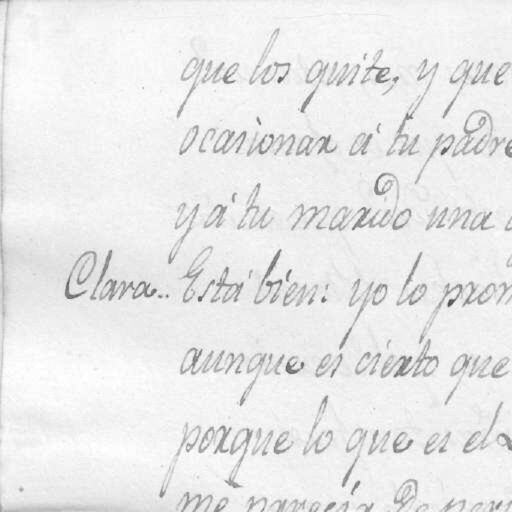 que los quite, y que
ocasionar á tu padre
y á tu marido una
Clara.. Está bien: yo lo prom
aunque es cierto que
porque lo que es el
me parecia de per